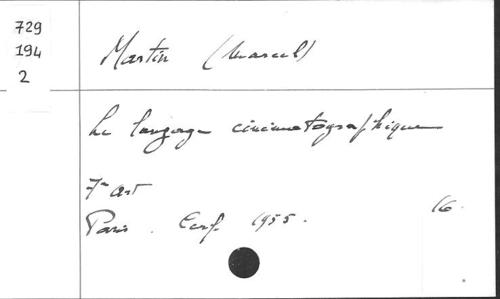 729
194
2
Martin (Marcel)
Le langage cinématographique
7e art
Paris. Cerf. 1955.
16